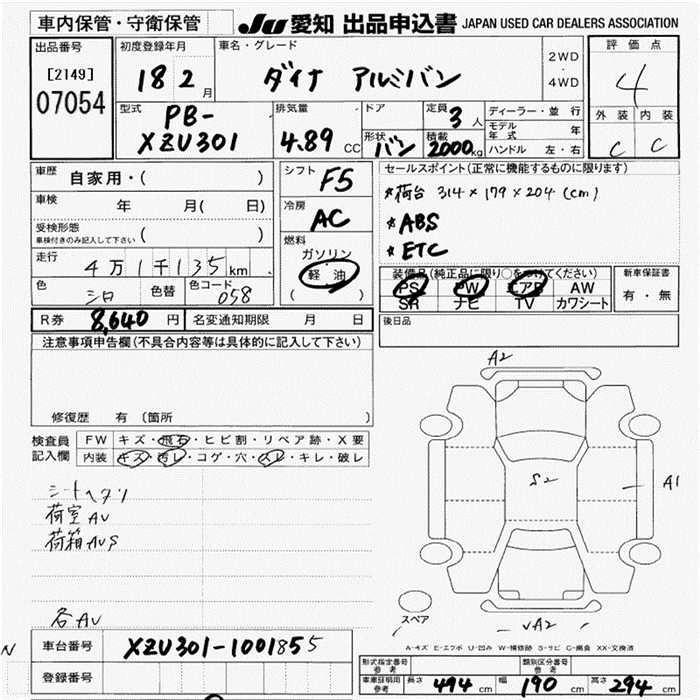 車内保管・守衛保管
JU 愛知 出品申込書 JAPAN USED CAR DEALERS ASSOCIATION
出品番号 初度登録年月 車名・グレード 評価点
[2149] 18 2月 ダイナ アルミバン 2WD・4WD 4
07054
型式 PB-XZU301 排気量 4.89 CC ドア 定員 3人 ディーラー・並行 外装 内装
形状 バン 積載 2000kg モデル年式 年 C C
ハンドル 左・右
車歴 自家用・( ) シフト F5 セールスポイント(正常に機能するものに限ります)
車検 年 月( 日) 冷房 AC *荷台 314×179×204 (cm)
受検形態 ( ) *ABS
車検付きのみ記入して下さい 燃料 *ETC
走行 4万1千135km ガソリン
軽油
( )
色 シロ 色替 色コード 058
装備品(純正品に限り○をつけてください) 新車保証書
PS PW エアB AW 有・無
SR ナビ TV カワシート
R券 8,640円 名変通知期限 月 日 後日品
注意事項申告欄(不具合内容等は具体的に記入して下さい)
修復歴 有 〔箇所
検査員記入欄 FW キズ・飛石・ヒビ割・リペア跡・X要
内装 キズ・汚レ・コゲ・穴・スレ・キレ・破レ
A2
S2
A1
シートヘタリ
荷室AU
荷箱AUS
各AU
スペア
A2
A-キズ E-エクボ U-凹み W-補修跡 S-サビ C-腐食 XX-交換済
N
車台番号 XZU301-1001855
登録番号
形式指定番号参考 類別区分番号参考
車庫証明用参考 長さ 494cm 幅 190cm 高さ 294cm